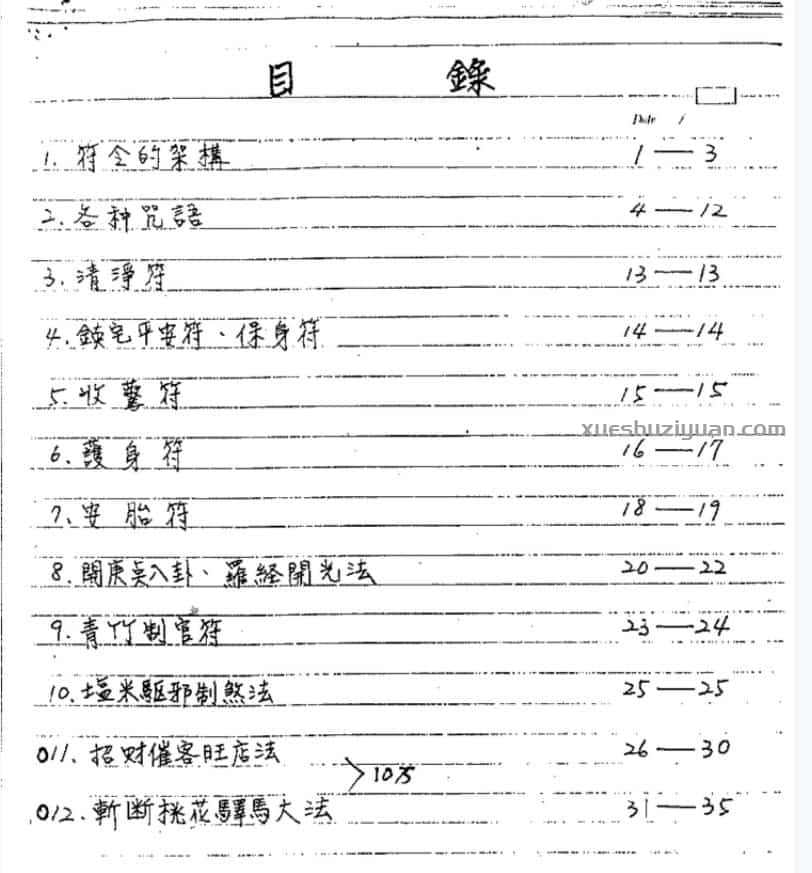 目 錄
Date /
1. 符令的架構 1—3
2. 各种咒語 4—12
3. 清淨符 13—13
4. 鎮宅平安符、保身符 14—14
5. 收驚符 15—15
xueshuziyuan.com
6. 護身符 16—17
7. 安胎符 18—19
8. 開庚貞八卦、羅経開光法 20—22
9. 青竹制官符 23—24
10. 塩米駆邪制煞法 25—25
011. 招財催客旺店法 26—30
012. 斬断桃花驛馬大法 31—35